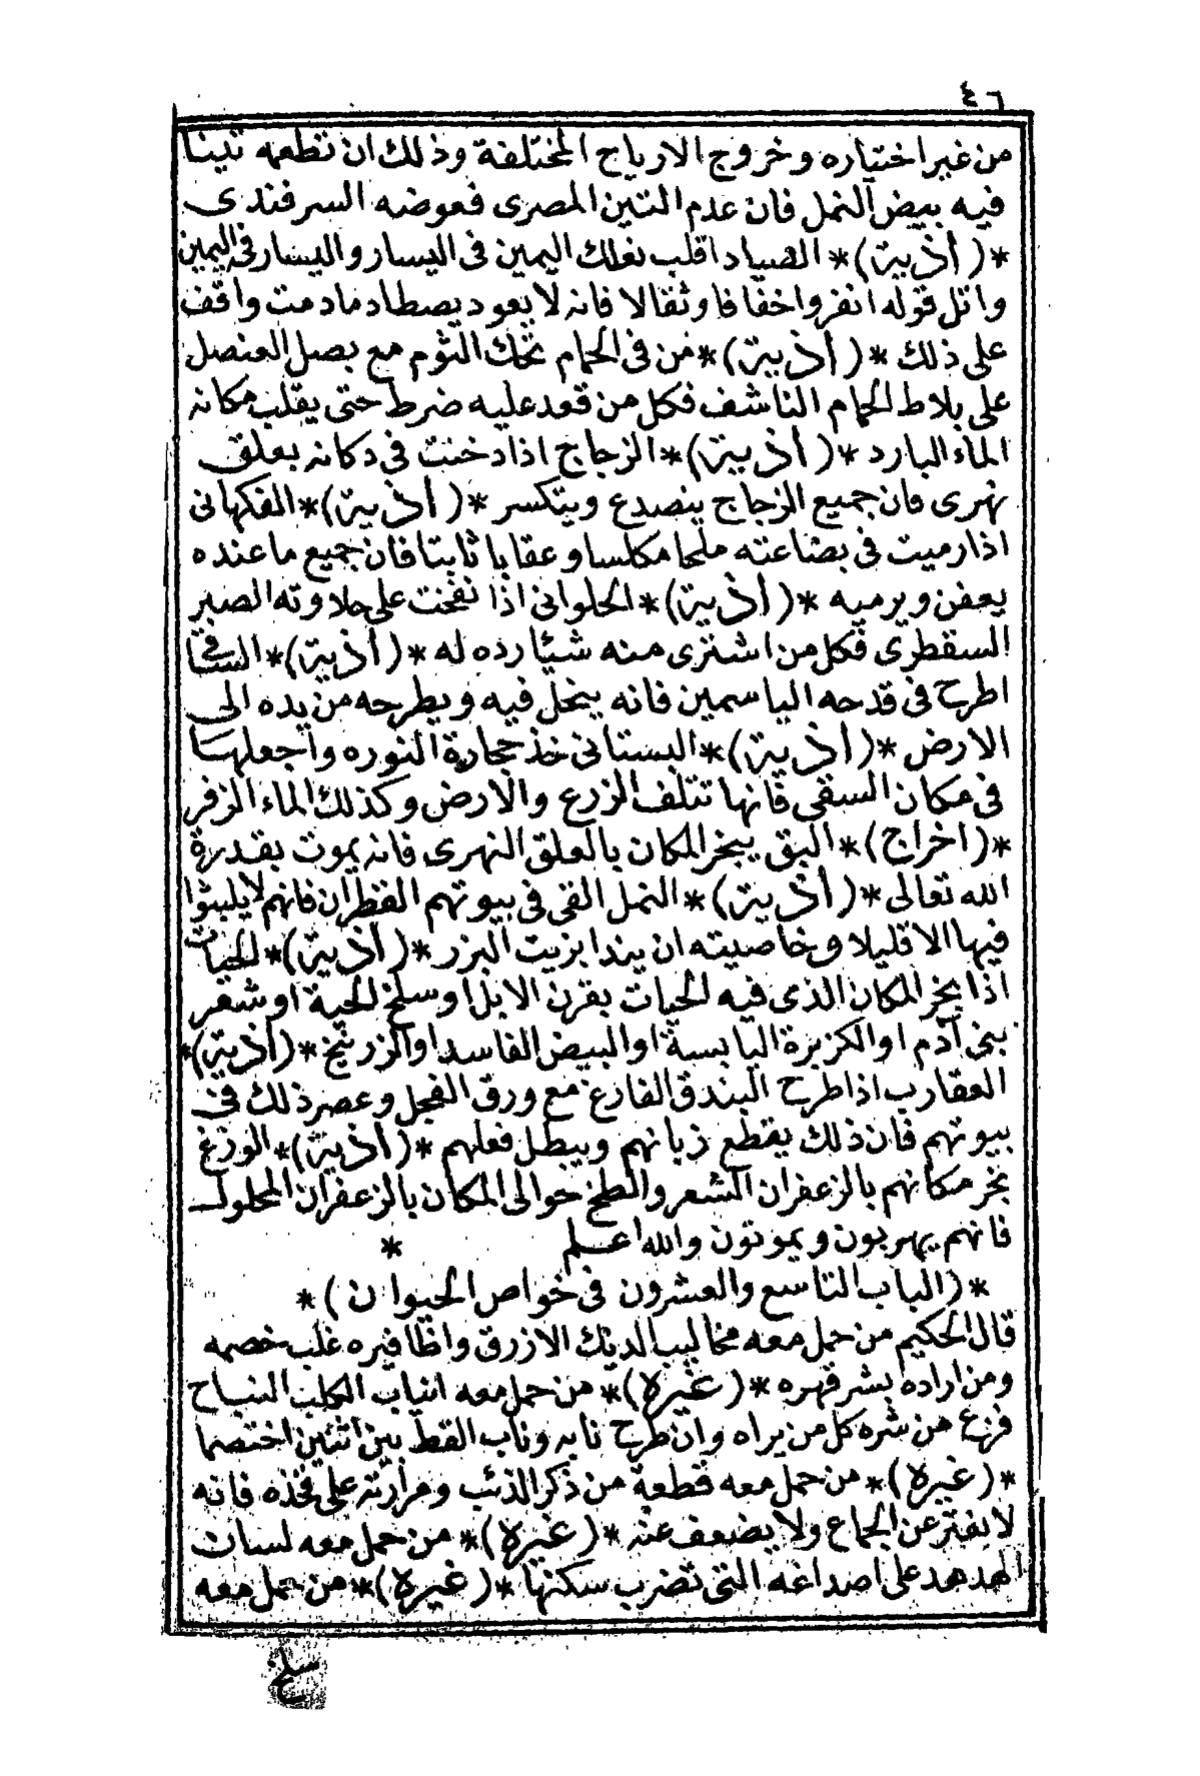 ٤٦
من غير اختياره وخروج الارياح المختلفة وذلك ان تطعمه تينا
فيه بيض النمل فان عدم التين المصرى فعوضه السرفندى
*(أذية)* الصياد اقلب نعلك اليمين فى اليسار واليسار فى اليمين
واتل قوله انفروا خفافا وثقالا فانه لا يعود يصطاد ما دمت واقف
على ذلك *(أذية)* من فى الحمام تحك الثوم مع بصل العنصل
على بلاط الحمام الناشف فكل من قعد عليه ضرط حتى يقلب مكانه
الماء البارد *(أذية)* الزجاج اذا دخنت فى دكانه بعلق
نهرى فان جميع الزجاج ينصدع ويتكسر *(أذية)* الفكهانى
اذا رميت فى بضاعته ملحا مكلسا وعقابا ثابتا فان جميع ما عنده
يعفن ويرميه *(أذية)* الحلوانى اذا نفخت على حلاوته الصبر
السقطرى فكل من اشترى منه شيئا رده له *(أذية)* السقا
اطرح فى قدحه الياسمين فانه ينخل فيه ويطرحه من يده الى
الارض *(أذية)* البستانى خذ حجارة النوره واجعلها
فى مكان السقى فانها تتلف الزرع والارض وكذلك الماء الزفر
*(اخراج)* البق يبخر المكان بالعلق النهرى فانه يموت بقدرة
الله تعالى *(أذية)* النمل القى فى بيوتهم القطران فانهم لا يلبثوا
فيها الا قليلا وخاصيته ان يندا بزيت البزر *(أذية)* الحيات
اذا بخر المكان الذى فيه الحيات بقرن الابل او سلخ الحية او شعر
بنى آدم او الكزبرة اليابسة او البيض الفاسد او الزرنيخ *(أذية)*
العقارب اذا طرح البندق الفارغ مع ورق الفجل وعصر ذلك فى
بيوتهم فان ذلك يقطع زبانهم ويبطل فعلهم *(أذية)* الوزغ
بخر مكانهم بالزعفران الشعر والطخ حوالى المكان بالزعفران المحلول
فانهم يهربون ويموتون والله اعلم *
*(الباب التاسع والعشرون فى خواص الحيوان)*
قال الحكيم من حمل معه مخاليب الديك الازرق واظافيره غلب خصمه
ومن اراده بشر قهره *(غيره)* من حمل معه انياب الكلب النباح
فزع من شره كل من يراه وان طرح نابه وناب القط بين اثنين اختصما
*(غيره)* من حمل معه قطعة من ذكر الذئب ومرارته على فخذه فانه
لا يفتر عن الجماع ولا يضعف عنه *(غيره)* من حمل معه لسان
الهدهد على اصداغه التى تضرب سكنها *(غيره)* من حمل معه
سلخ